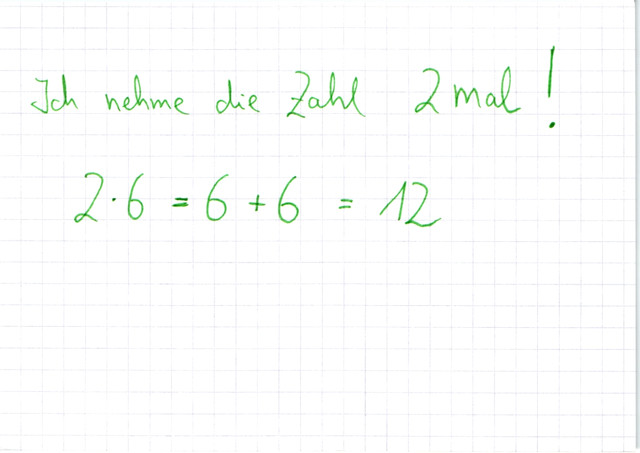 Ich nehme die Zahl 2mal!
2·6 = 6 + 6 = 12